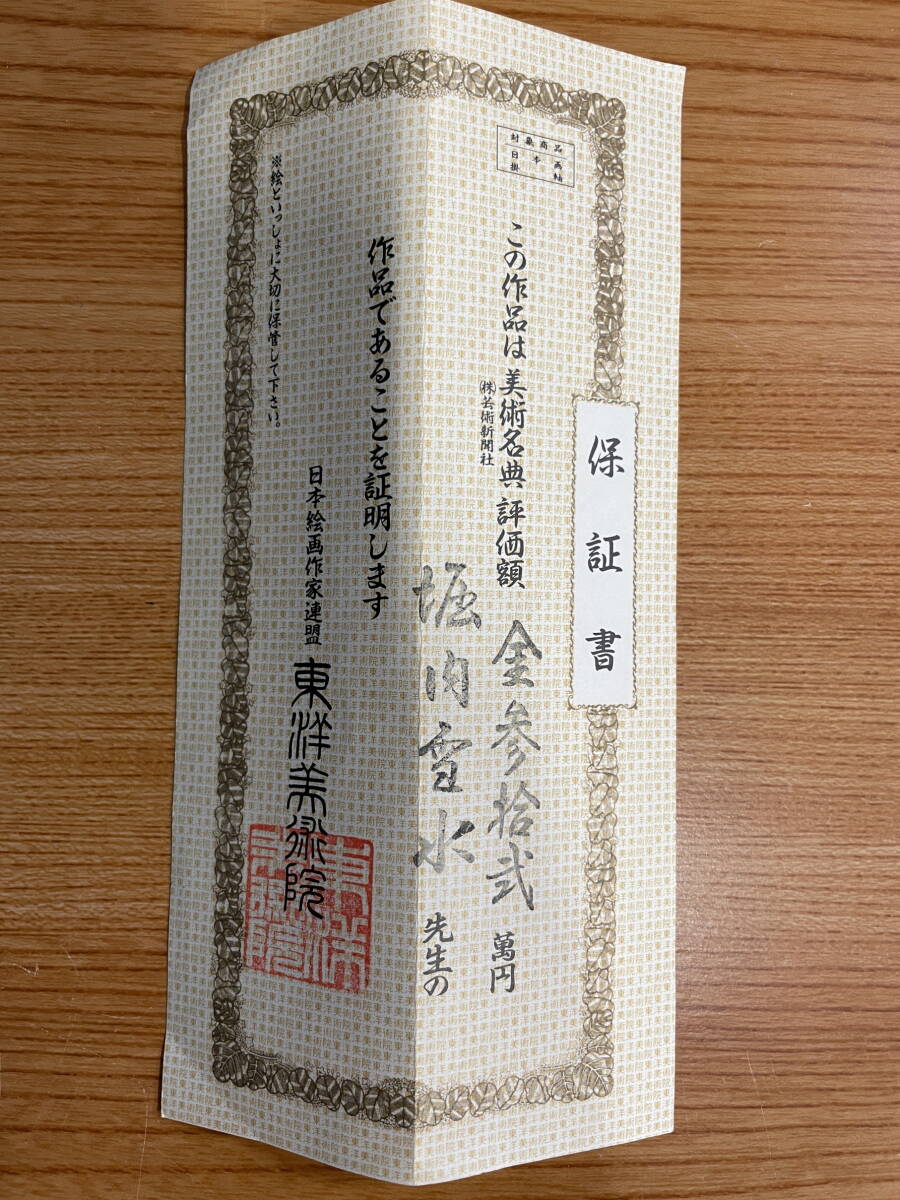 保証書
対象商品
日本画
掛軸
この作品は美術名典評価額金参拾弐萬円
㈱芸術新聞社
堀内雪水先生の
作品であることを証明します
日本絵画作家連盟東洋美術院
東洋美術院
※絵といっしょに大切に保管して下さい。